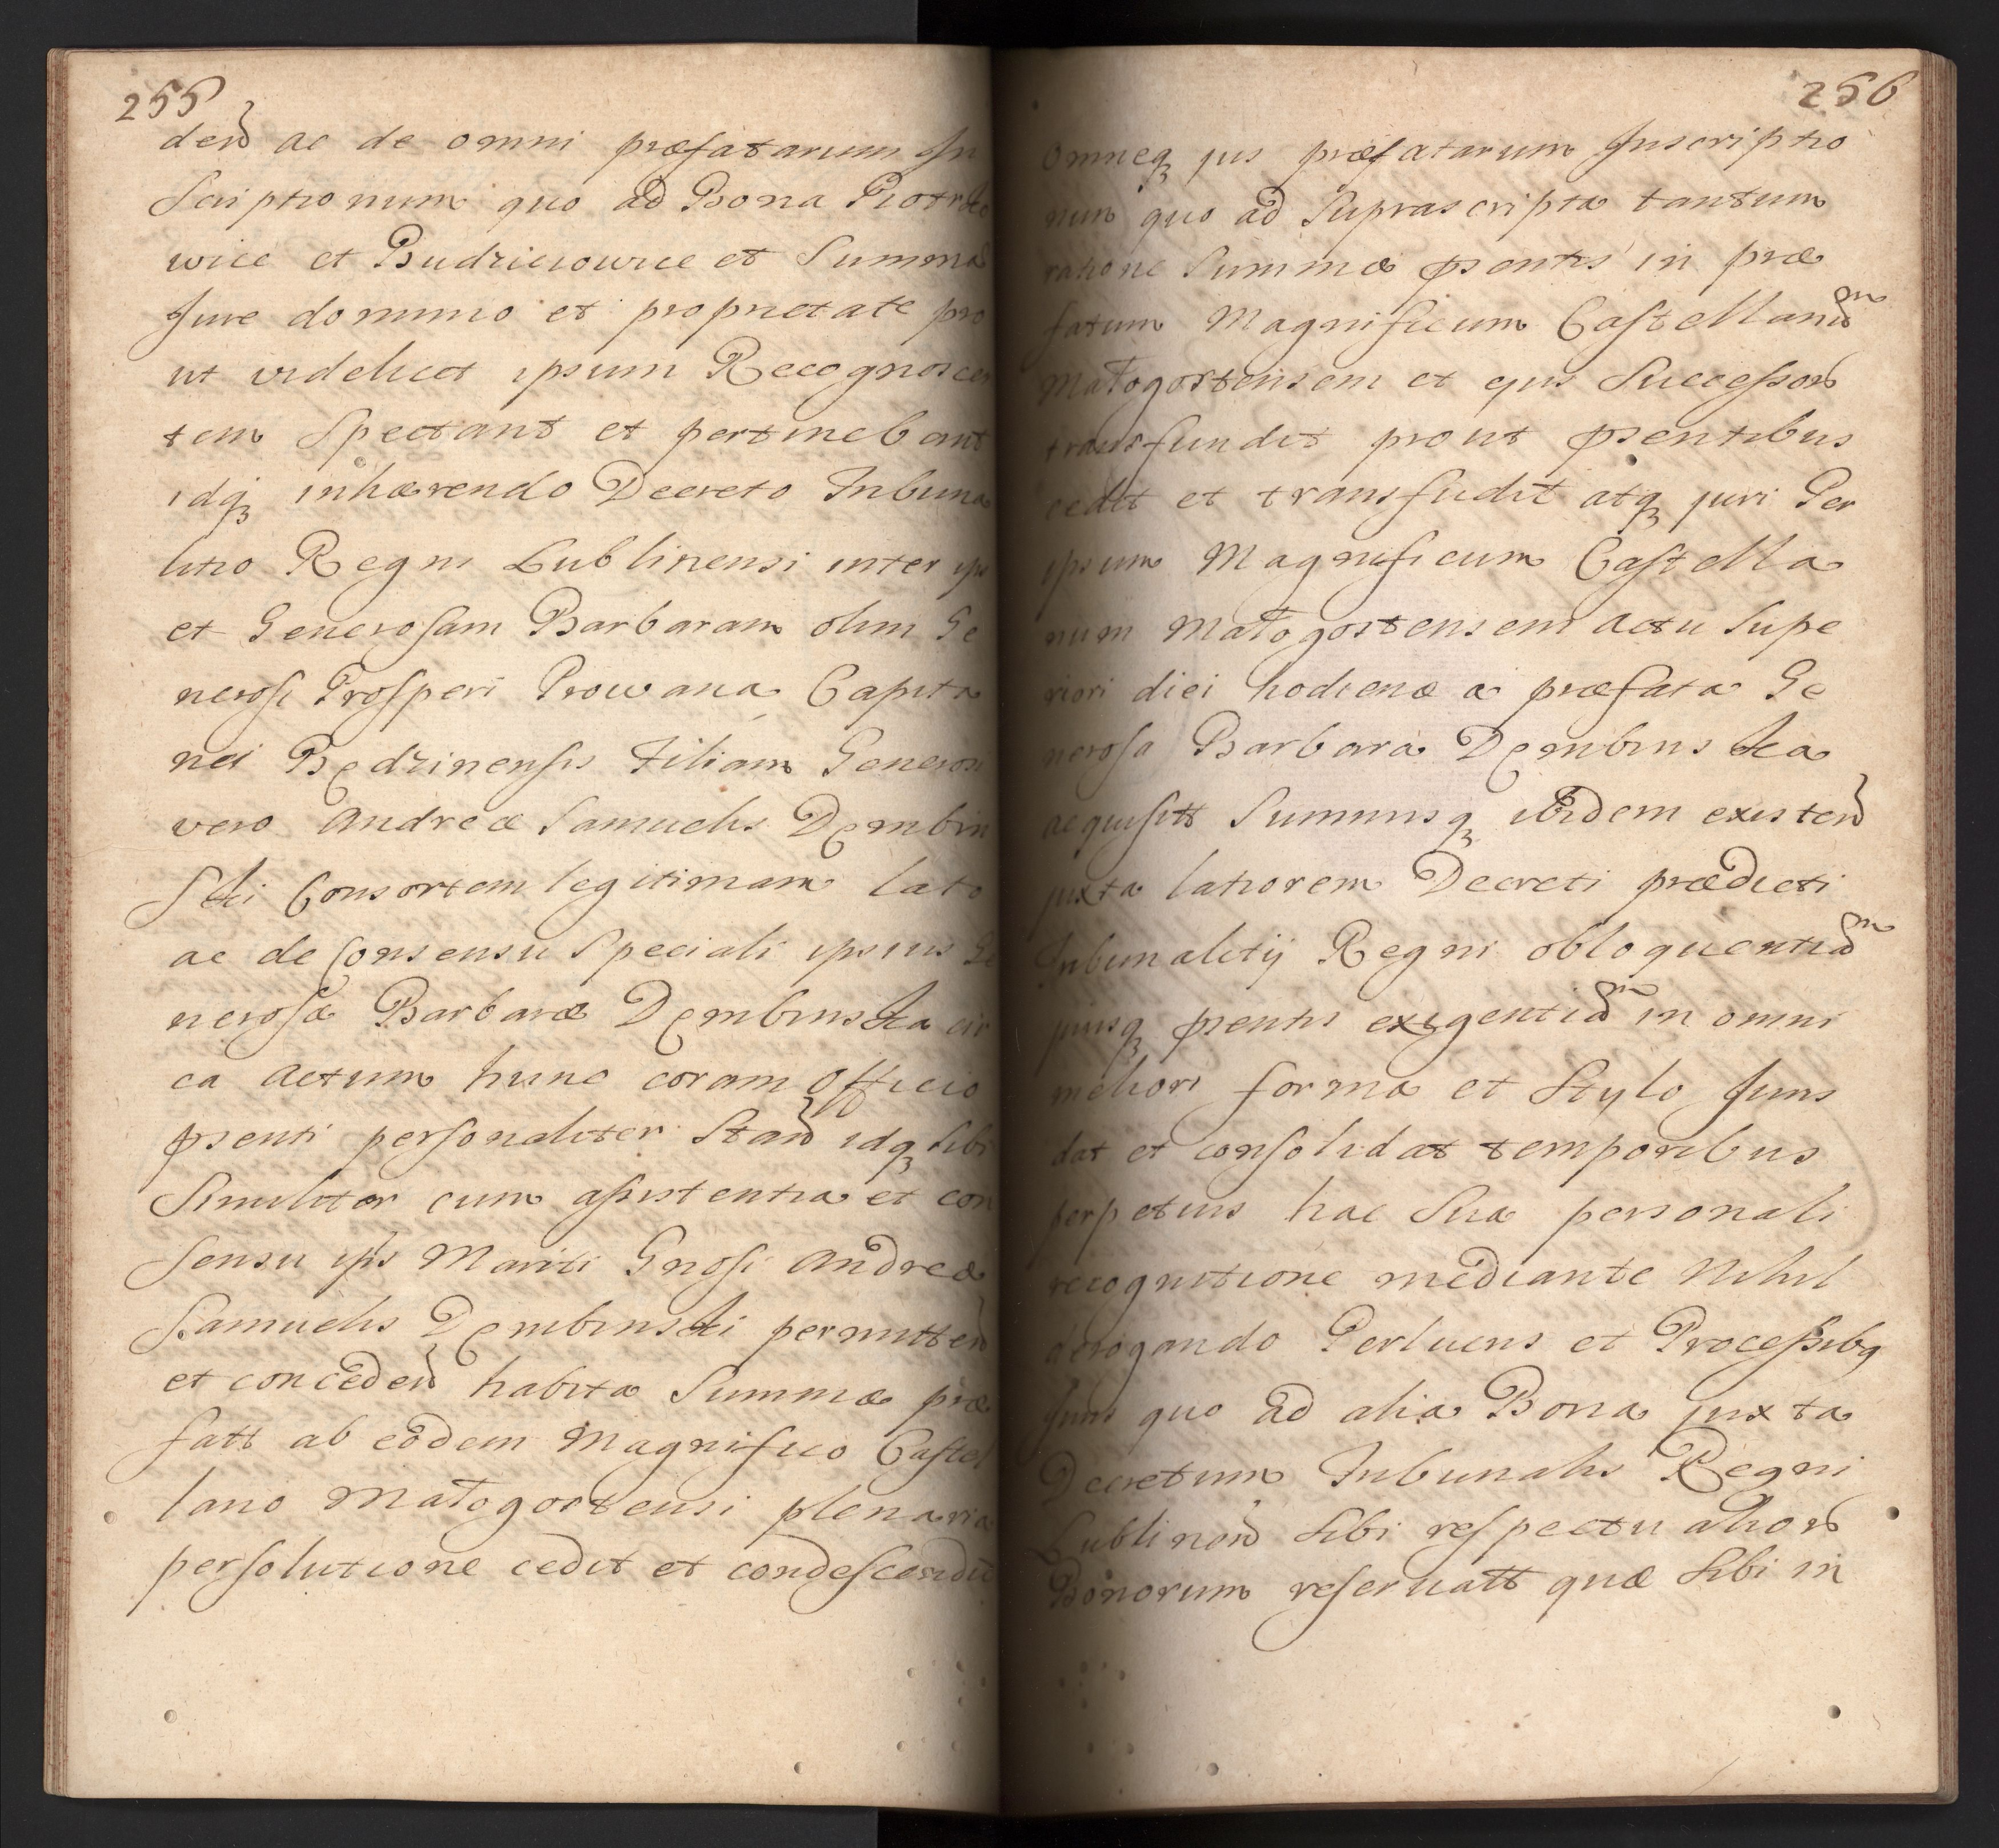 255
dend ac de omni præfatarum In
Scriptionum quo ad Bona Piotrko
wice et Budzieiowice et Summas
Jure dominio et proprietate pro
ut videlicet ipsum Recognoscen
tem Spectant et pertinebant
idq inhærendo Decreto Tribuna
litio Regni Lublinensi inter ips
et Generosam Barbaram olim Ge
nerosi Prosperi Prowana Capita
nei Będzinensis Filiam Generosi
vero Andreæ Samuelis Dęmbin
Ski Consortem legitimam lato
ac de Consensu Speciali ipsius Ge
nerosæ Barbaræ Dęmbinska cir
ca actum hunc coram Officio
psenti personaliter Stand idq sibi
Similiter cum assistentia et con
sensu ips Mariti Gnosi Andreæ
Samuelis Dęmbinski permitten
et conceden habita Summæ præ
fatt ab eodem Magnifico Castel
lano Małogostensi plenaria
persolutione cedit et condescendit
256
Omneq jus præfatarum Inscriptio
num quo ad Suprascripta tantum
ratione Summæ psentis in præ
fatum Magnificum Castellanum
Małogostensem et ejus Successors
transfundit prout psentibus
cedit et transfudit atq juri Per
ipsum Magnificum Castella
num Małogostensem actu Supe
riori diei hodienæ a præfata Ge
nerosa Barbara Dęmbinska
acquisitt Summisq ibidem existend
juxta latiorem Decreti prædicti
Tribunalitij Regni obloquentiam
jurisq psentis exigentiam in omni
meliori forma et Stylo Juris
dat et consolidat temporibus
perpetuis hac Sua personali
recognitione mediante Nihil
derogando Perlucris et Processibq
Juris quo ad alia Bona juxta
Decretum Tribunalis Regni
Lublinen Sibi respectu alior
Bonorum reservatt quæ Sibi in